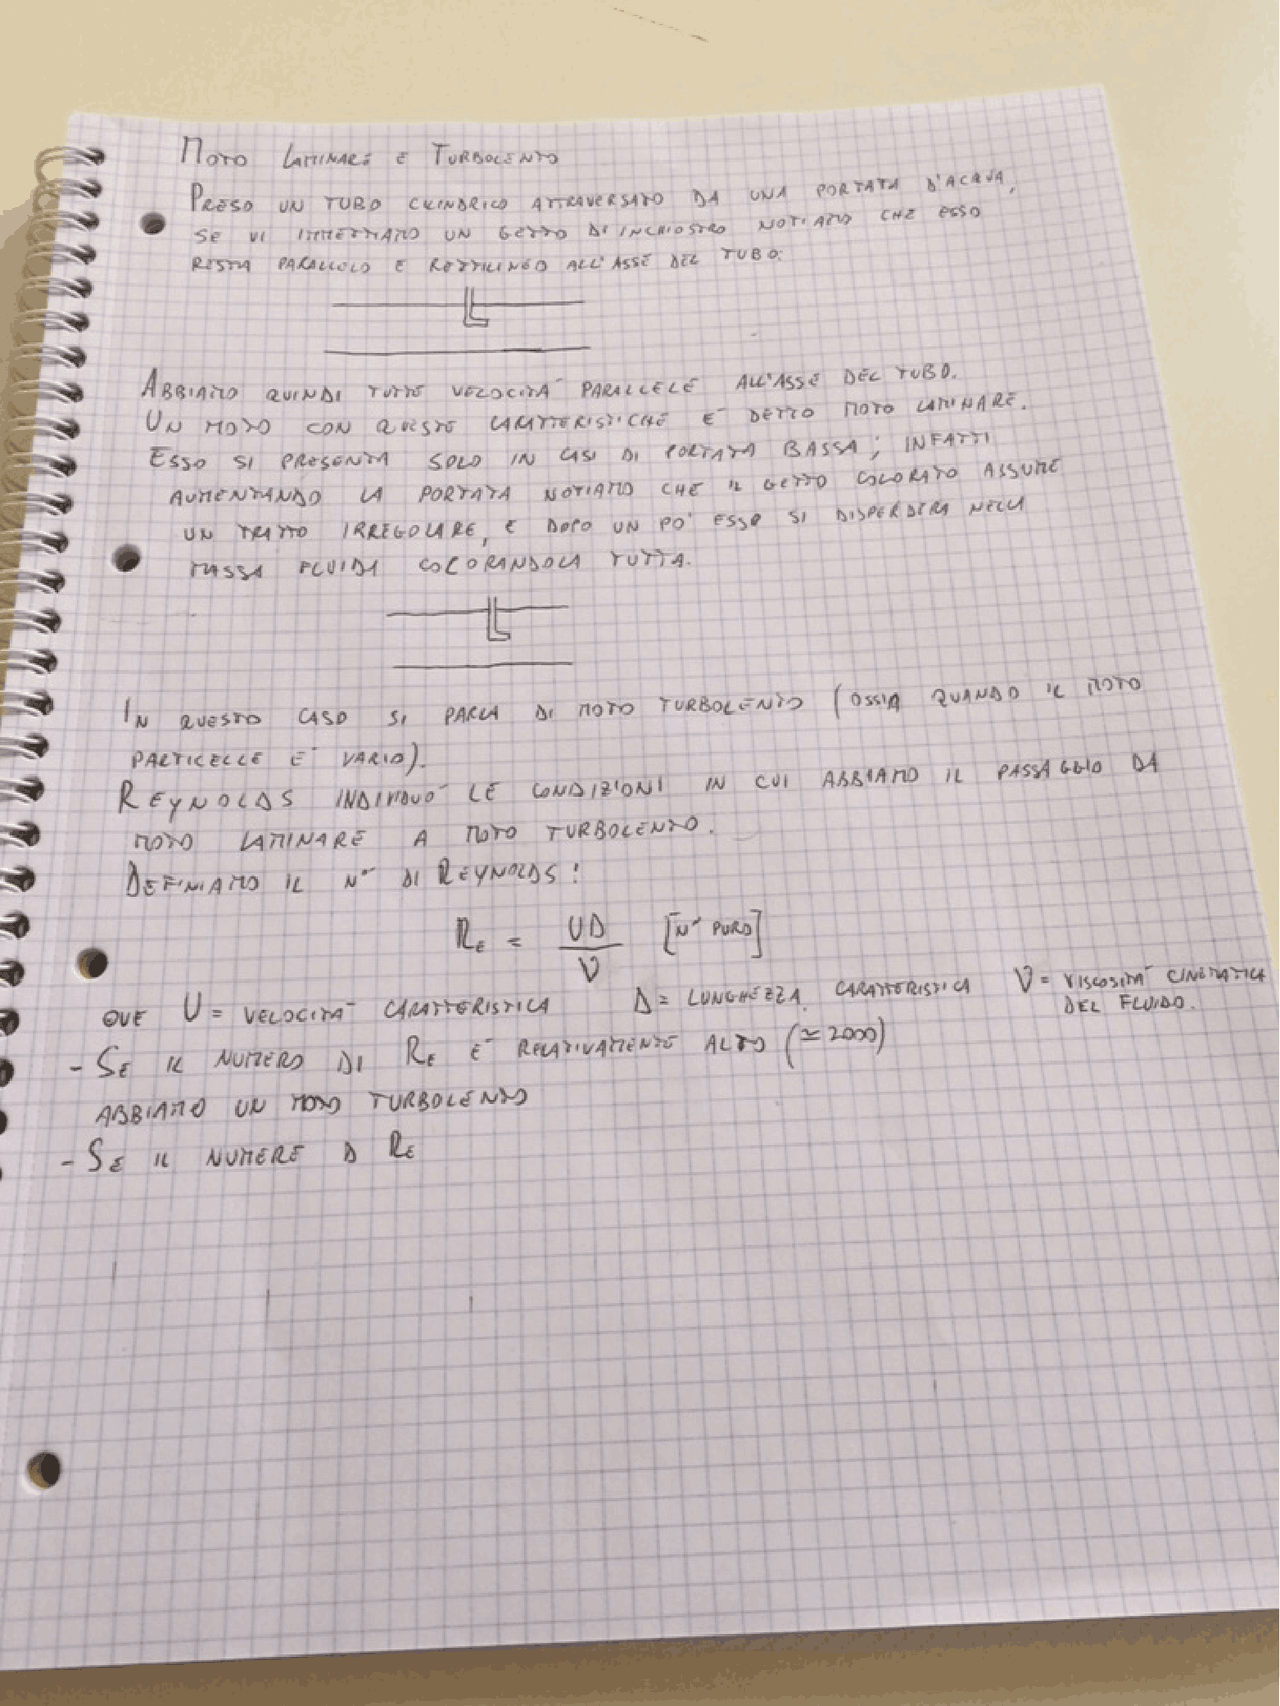 MOTO LAMINARE E TURBOLENTO
PRESO UN TUBO CILINDRICO ATTRAVERSATO DA UNA PORTATA D'ACQUA,
SE VI IMMETTIAMO UN GETTO DI INCHIOSTRO NOTIAMO CHE ESSO
RESTA PARALLELO E RETTILINEO ALL'ASSE DEL TUBO:
ABBIAMO QUINDI TUTTE VELOCITA' PARALLELE ALL'ASSE DEL TUBO.
UN MOTO CON QUESTE CARATTERISTICHE E' DETTO MOTO LAMINARE.
ESSO SI PRESENTA SOLO IN CASI DI PORTATA BASSA; INFATTI
AUMENTANDO LA PORTATA NOTIAMO CHE IL GETTO COLORATO ASSUME
UN TRATTO IRREGOLARE, E DOPO UN PO' ESSO SI DISPERDERA NELLA
MASSA FLUIDA COLORANDOLA TUTTA.
IN QUESTO CASO SI PARLA DI MOTO TURBOLENTO (OSSIA QUANDO IL MOTO
PARTICELLE E' VARIO).
REYNOLDS INDIVIDUO' LE CONDIZIONI IN CUI ABBIAMO IL PASSAGGIO DA
MOTO LAMINARE A MOTO TURBOLENTO.
DEFINIAMO IL N° DI REYNOLDS:
RE = UD/ν [N° PURO]
OVE U = VELOCITA' CARATTERISTICA D = LUNGHEZZA CARATTERISTICA ν = VISCOSITA' CINEMATICA
DEL FLUIDO.
- SE IL NUMERO DI RE E' RELATIVAMENTE ALTO (≃ 2000)
ABBIAMO UN MOTO TURBOLENTO
- SE IL NUMERE D RE